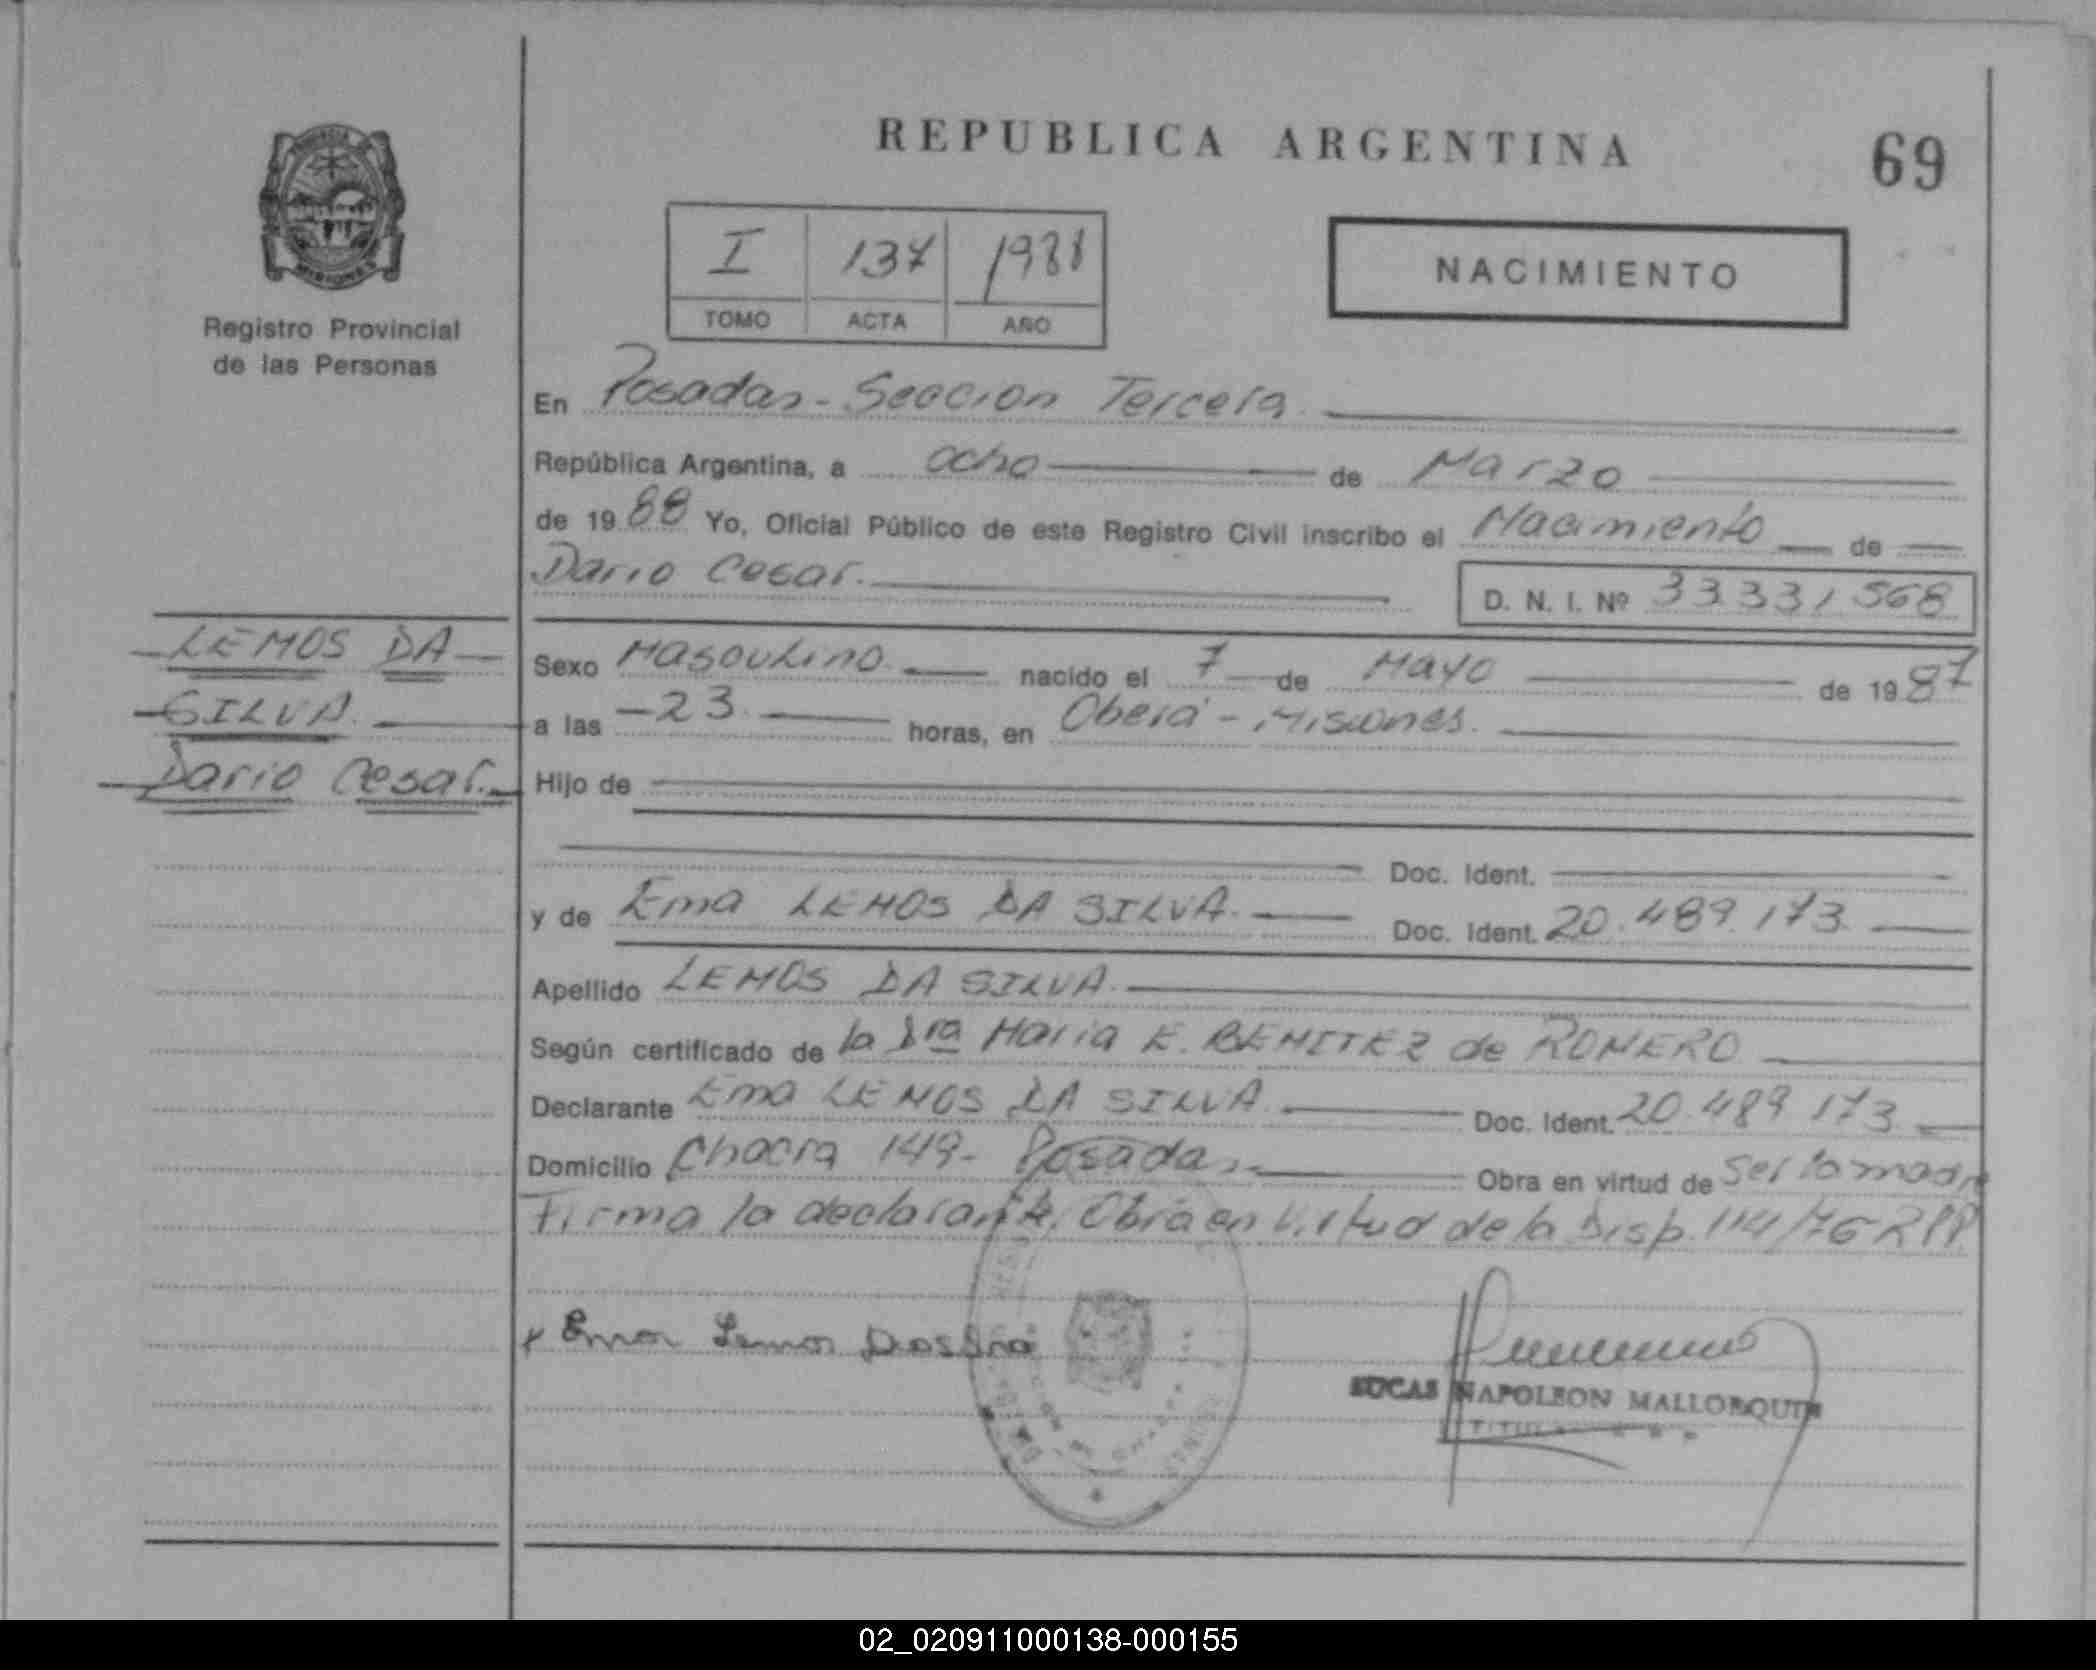 REPUBLICA ARGENTINA
69
PROVINCIA
MISIONES
Registro Provincial
de las Personas
I 137 1988
TOMO ACTA AÑO
NACIMIENTO
En Posadas - Seccion Tercera
República Argentina, a ocho de Marzo
de 1988 Yo, Oficial Público de este Registro Civil inscribo el Nacimiento de
Dario Cesar.
D. N. I. Nº 33.331.568
LEMOS DA
SILVA.
Dario Cesar.
Sexo Masculino. nacido el 7 de Mayo de 1987
a las -23. horas, en Oberá - Misiones.
Hijo de
Doc. Ident.
y de Ema LEMOS DA SILVA. Doc. Ident. 20.489.173
Apellido LEMOS DA SILVA.
Según certificado de la Dra Maria E. BENITEZ de ROMERO
Declarante Ema LEMOS DA SILVA. Doc. Ident. 20.489.173
Domicilio Chacra 149- Posadas.- Obra en virtud de Ser la madre
Firma la declarante. Obra en virtud de la Disp. 114/76 RPP
x Ema Lemos
LUCAS NAPOLEON MALLORQUIN
02_020911000138-000155